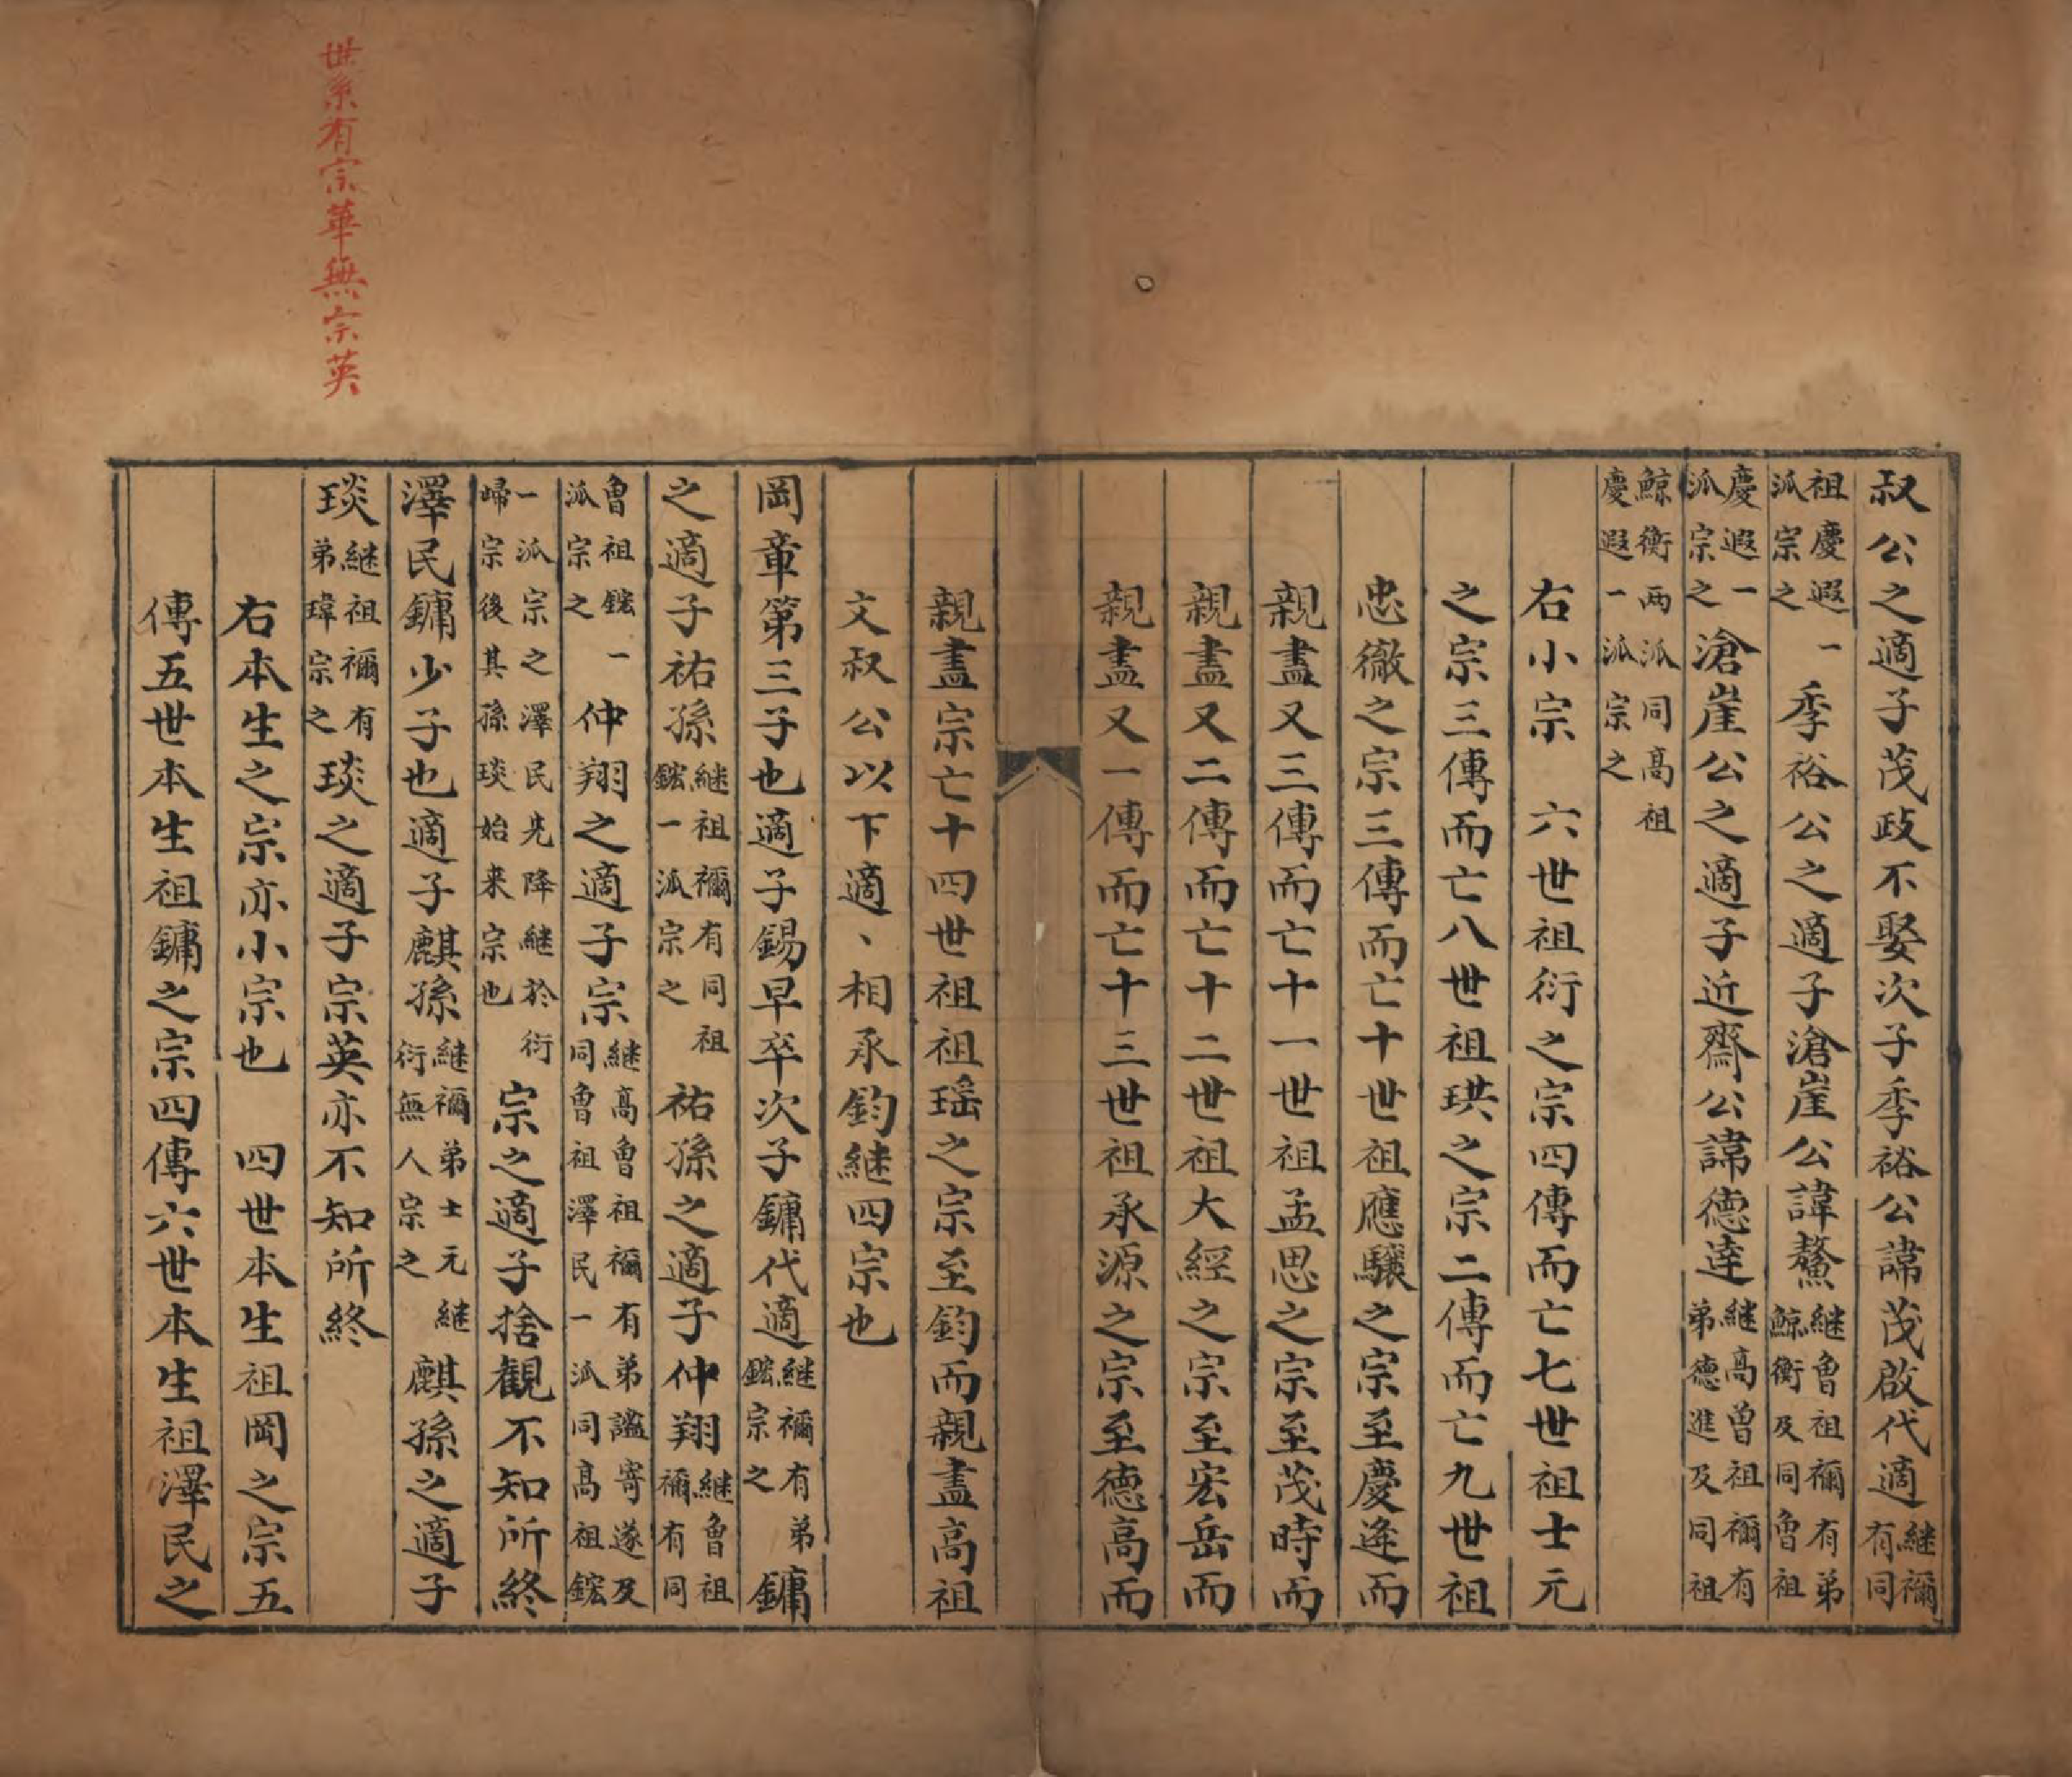 叔公之適子茂政不娶次子季裕公諱茂啟代適継禰有同
祖慶遐一派宗之季裕公之適子滄崖公諱鰲継曾祖禰有弟鯨衡及同曾祖
慶遐一派宗之滄崖公之適子近齋公諱德達継高曾祖禰有弟德進及同祖
鯨衡兩派同高祖慶遐一派宗之
右小宗　六世祖衍之宗四傳而亡七世祖士元
之宗三傳而亡八世祖珙之宗二傳而亡九世祖
忠徹之宗三傳而亡十世祖應驤之宗至慶逄而
親盡又三傳而亡十一世祖孟思之宗至茂時而
親盡又二傳而亡十二世祖大經之宗至宏岳而
親盡又一傳而亡十三世祖承源之宗至德高而
親盡宗亡十四世祖祖瑶之宗至鈞而親盡高祖
文叔公以下適、相承鈞継四宗也
岡章第三子也適子錫早卒次子鏞代適継禰有弟鋐宗之鏞
之適子祐孫継祖禰有同祖鋐一派宗之祐孫之適子仲翔継曾祖禰有同
曾祖鋐一派宗之仲翔之適子宗継高曾祖禰有弟謐寄遂及同曾祖澤民一派同高祖鋐
一派宗之澤民先降継於衍歸宗後其孫琰始来宗也宗之適子捨觀不知所終
澤民鏞少子也適子麒孫継禰弟士元継衍無人宗之麒孫之適子
琰継祖禰有弟瑋宗之琰之適子宗英亦不知所終
右本生之宗亦小宗也　四世本生祖岡之宗五
傳五世本生祖鏞之宗四傳六世本生祖澤民之
世系有宗華無宗英